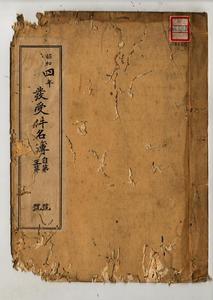 昭和
四年
發受件名簿
自第 號
至第 號